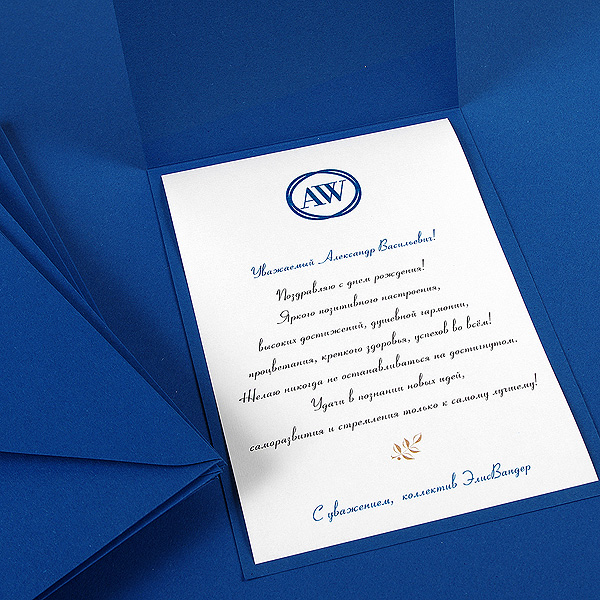 AW
Уважаемый Александр Васильевич!
Поздравляю с днем рождения!
Яркого позитивного настроения,
высоких достижений, душевной гармонии,
процветания, крепкого здоровья, успехов во всём!
Желаю никогда не останавливаться на достигнутом.
Удачи в познании новых идей,
саморазвития и стремления только к самому лучшему!
С уважением, коллектив ЭлисВандер